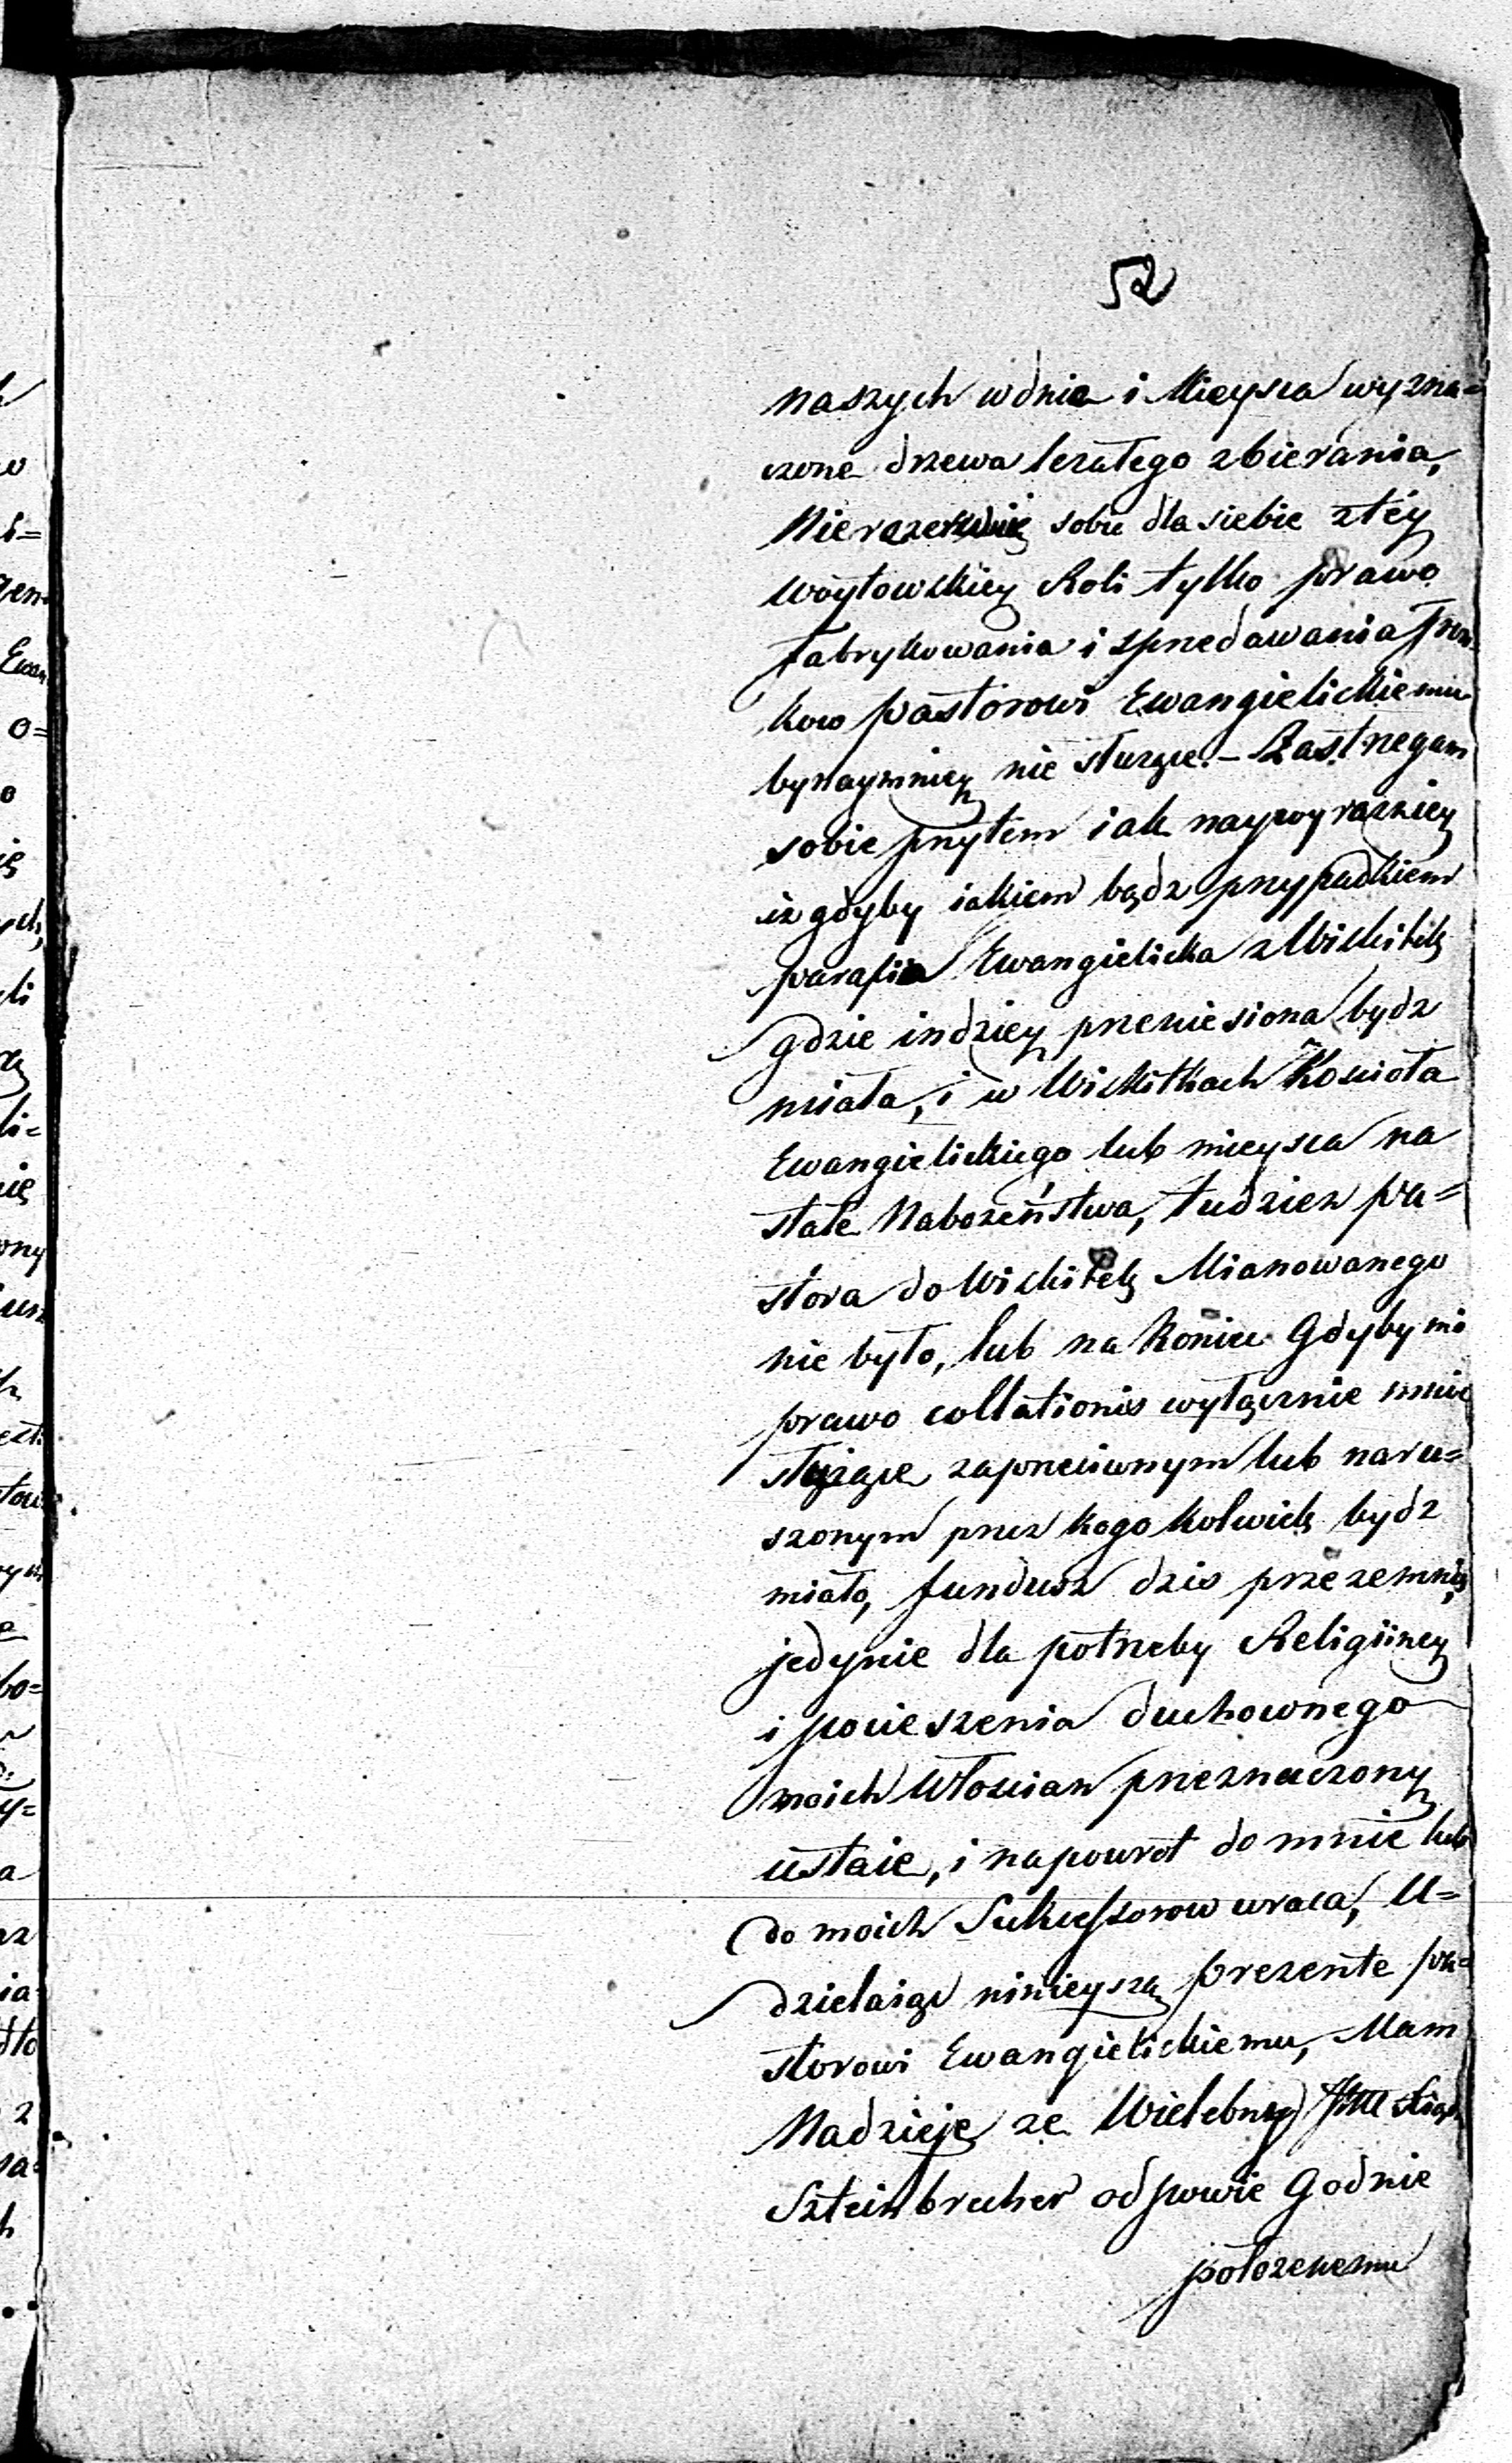 52
naszych w dnie i Mieysca wyzna=
czone drzewa lezałego zbierania,
Nierezerwuię sobie dla siebie z téy
woytowskiey Roli tylko prawo
fabrykowania i sprzedawania Trun
kow pastorowi Ewangielickiemu
bynaymniey nie służące. – Zastrzegam
sobie przytem iak naywyrazniey
iz gdyby iakiem bądz przypadkiem
parafia Ewangielicka z Wiskitek
gdzie indziey przeniesiona bydz
miała, i w Wiskitkach Koscioła
Ewangielickiego lub mieysca na
stałe Nabożeństwa, tudziez pa=
stora do Wiskitek Mianowanego
nie było, lub na koniec Gdyby mi
prawo collationis wyłącznie mnie
służące zaprzeciwnym lub naru=
szonym przez kogo kolwiek bydz
miało, fundusz dzis przezemnie,
jedynie dla potrzeby Religiiney
i pocieszenia duchownego
moich Włoscian przeznaczony
ustaie, i napowrot do mnie lub
do moich Sukcessorow wraca, U=
dzielaiąc ninieyszą prezente pa=
storowi Ewangielickiemu, Mam
Nadzieję ze Wielebny
Szteinbrecher odpowie Godnie
położenemu